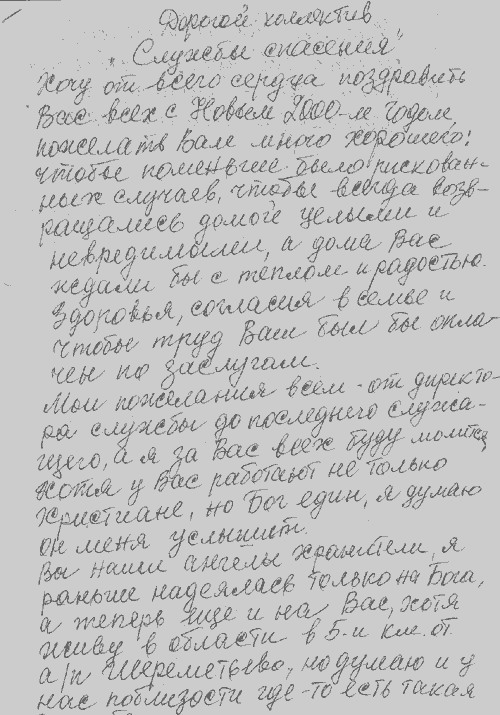 Дорогой коллектив
"Службы спасения"
Хочу от всего сердца поздравить
Вас всех с Новым 2000-м годом,
пожелать Вам много хорошего:
чтобы поменьше было рискован-
ных случаев, чтобы всегда возв-
ращались домой целыми и
невредимыми, а дома Вас
ждали бы с теплом и радостью.
Здоровья, согласия в семье и
чтобы труд Ваш был бы опла-
чен по заслугам.
Мои пожелания всем - от директо-
ра службы до последнего служа-
щего, а я за Вас всех буду молится,
хотя у Вас работают не только
христиане, но Бог един, я думаю
он меня услышит.
Вы наши ангелы хранители, я
раньше надеялась только на Бога,
а теперь еще и на Вас, хотя
живу в области в 5-и км. от
а/п Шереметьево, но думаю и у
нас поблизости где-то есть такая